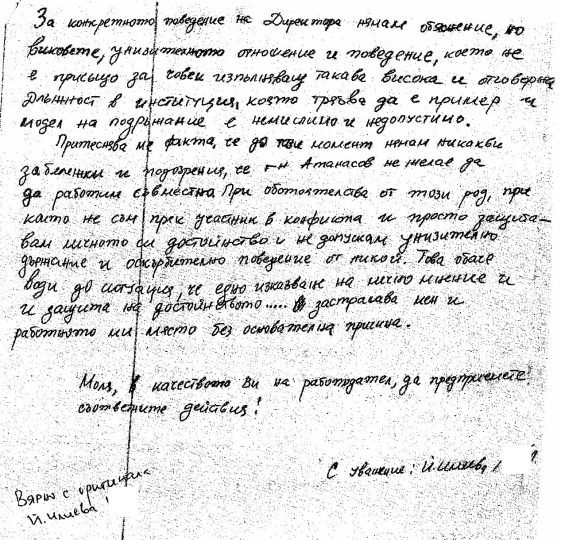 За конкретното поведение на Директора нямам обяснение, но
виковете, унизителното отношение и поведение, което не
е присъщо за човек изпълняващ такава висока и отговорна
длъжност в институция, която трябва да е пример и
модел на подражание е немислимо и недопустимо.
Притеснява ме факта, че до този момент нямам никакви
забележки и подозрения, че г-н Атанасов не желае да
да работим съвместно. При обстоятелства от този род, при
които не съм пряк участник в конфликта и просто защита-
вам личното си достойнство и не допускам унизително
държание и оскърбително поведение от никой. Това обаче
води до ситуация, че едно изказване на лично мнение и
и защита на достойнството..... застрашава мен и
работното ми място без основателна причина.
Моля, в качеството Ви на работодател, да предприемете
съответните действия!
С уважение: Й.Илиева/
Вярно с оригинала
Й.Илиева!